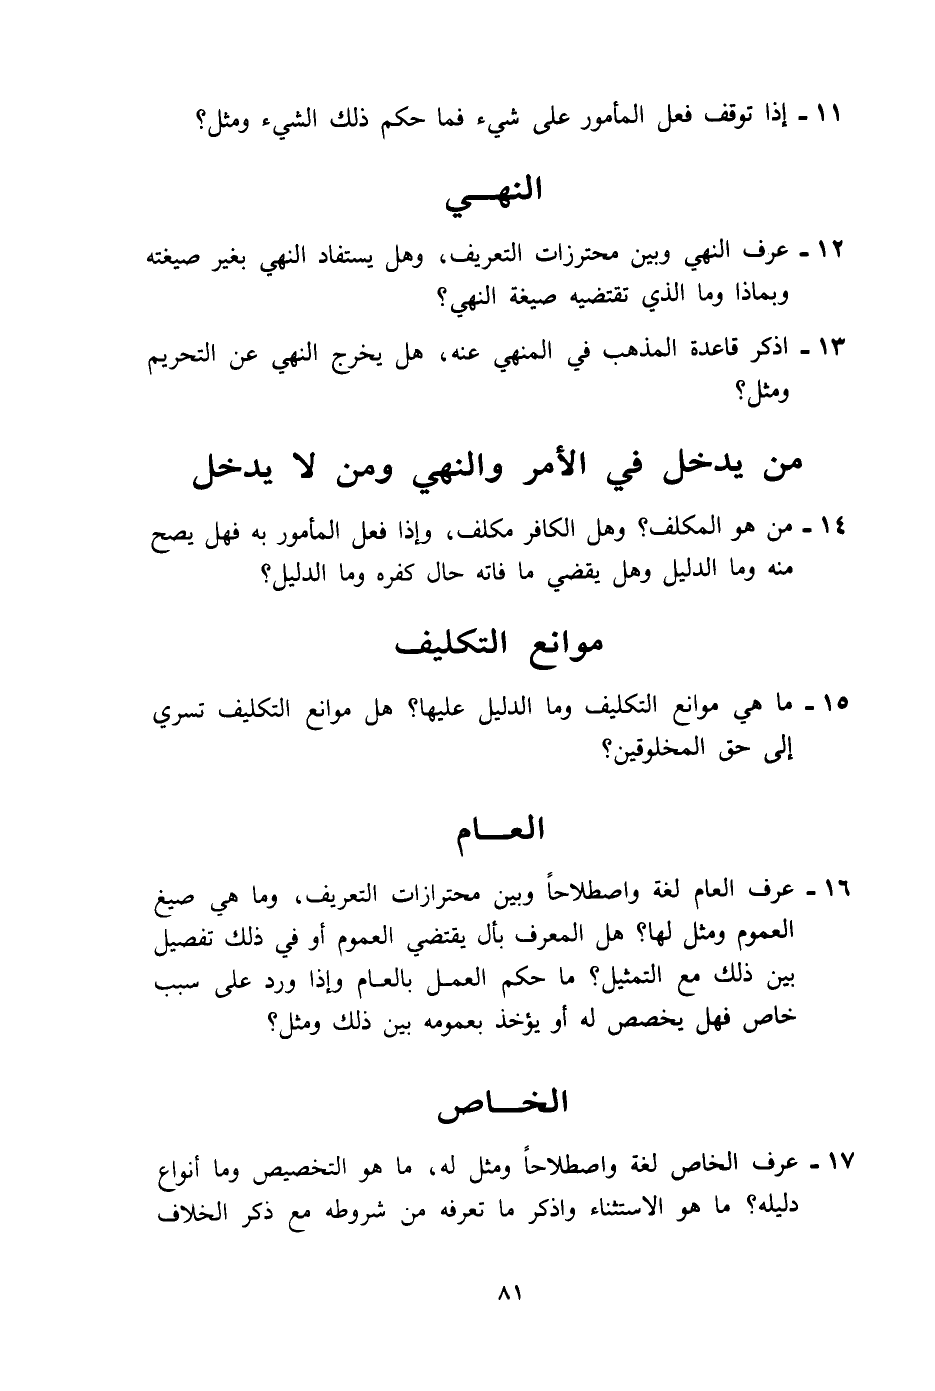 ١١ - إذا توقف فعل المأمور على شيء فما حكم ذلك الشيء ومثل؟
النهـــي
١٢ - عرف النهي وبين محترزات التعريف، وهل يستفاد النهي بغير صيغته
وبماذا وما الذي تقتضيه صيغة النهي؟
١٣ - اذكر قاعدة المذهب في المنهي عنه، هل يخرج النهي عن التحريم
ومثل؟
من يدخل في الأمر والنهي ومن لا يدخل
١٤ - من هو المكلف؟ وهل الكافر مكلف، وإذا فعل المأمور به فهل يصح
منه وما الدليل وهل يقضي ما فاته حال كفره وما الدليل؟
موانع التكليف
١٥ - ما هي موانع التكليف وما الدليل عليها؟ هل موانع التكليف تسري
إلى حق المخلوقين؟
العـــام
١٦ - عرف العام لغة واصطلاحاً وبين محترازات التعريف، وما هي صيغ
العموم ومثل لها؟ هل المعرف بأل يقتضي العموم أو في ذلك تفصيل
بين ذلك مع التمثيل؟ ما حكم العمـل بالعـام وإذا ورد على سبب
خاص فهل يخصص له أو يؤخذ بعمومه بين ذلك ومثل؟
الخـــاص
١٧ - عرف الخاص لغة واصطلاحاً ومثل له، ما هو التخصيص وما أنواع
دليله؟ ما هو الاستثناء واذكر ما تعرفه من شروطه مع ذكر الخلاف
٨١